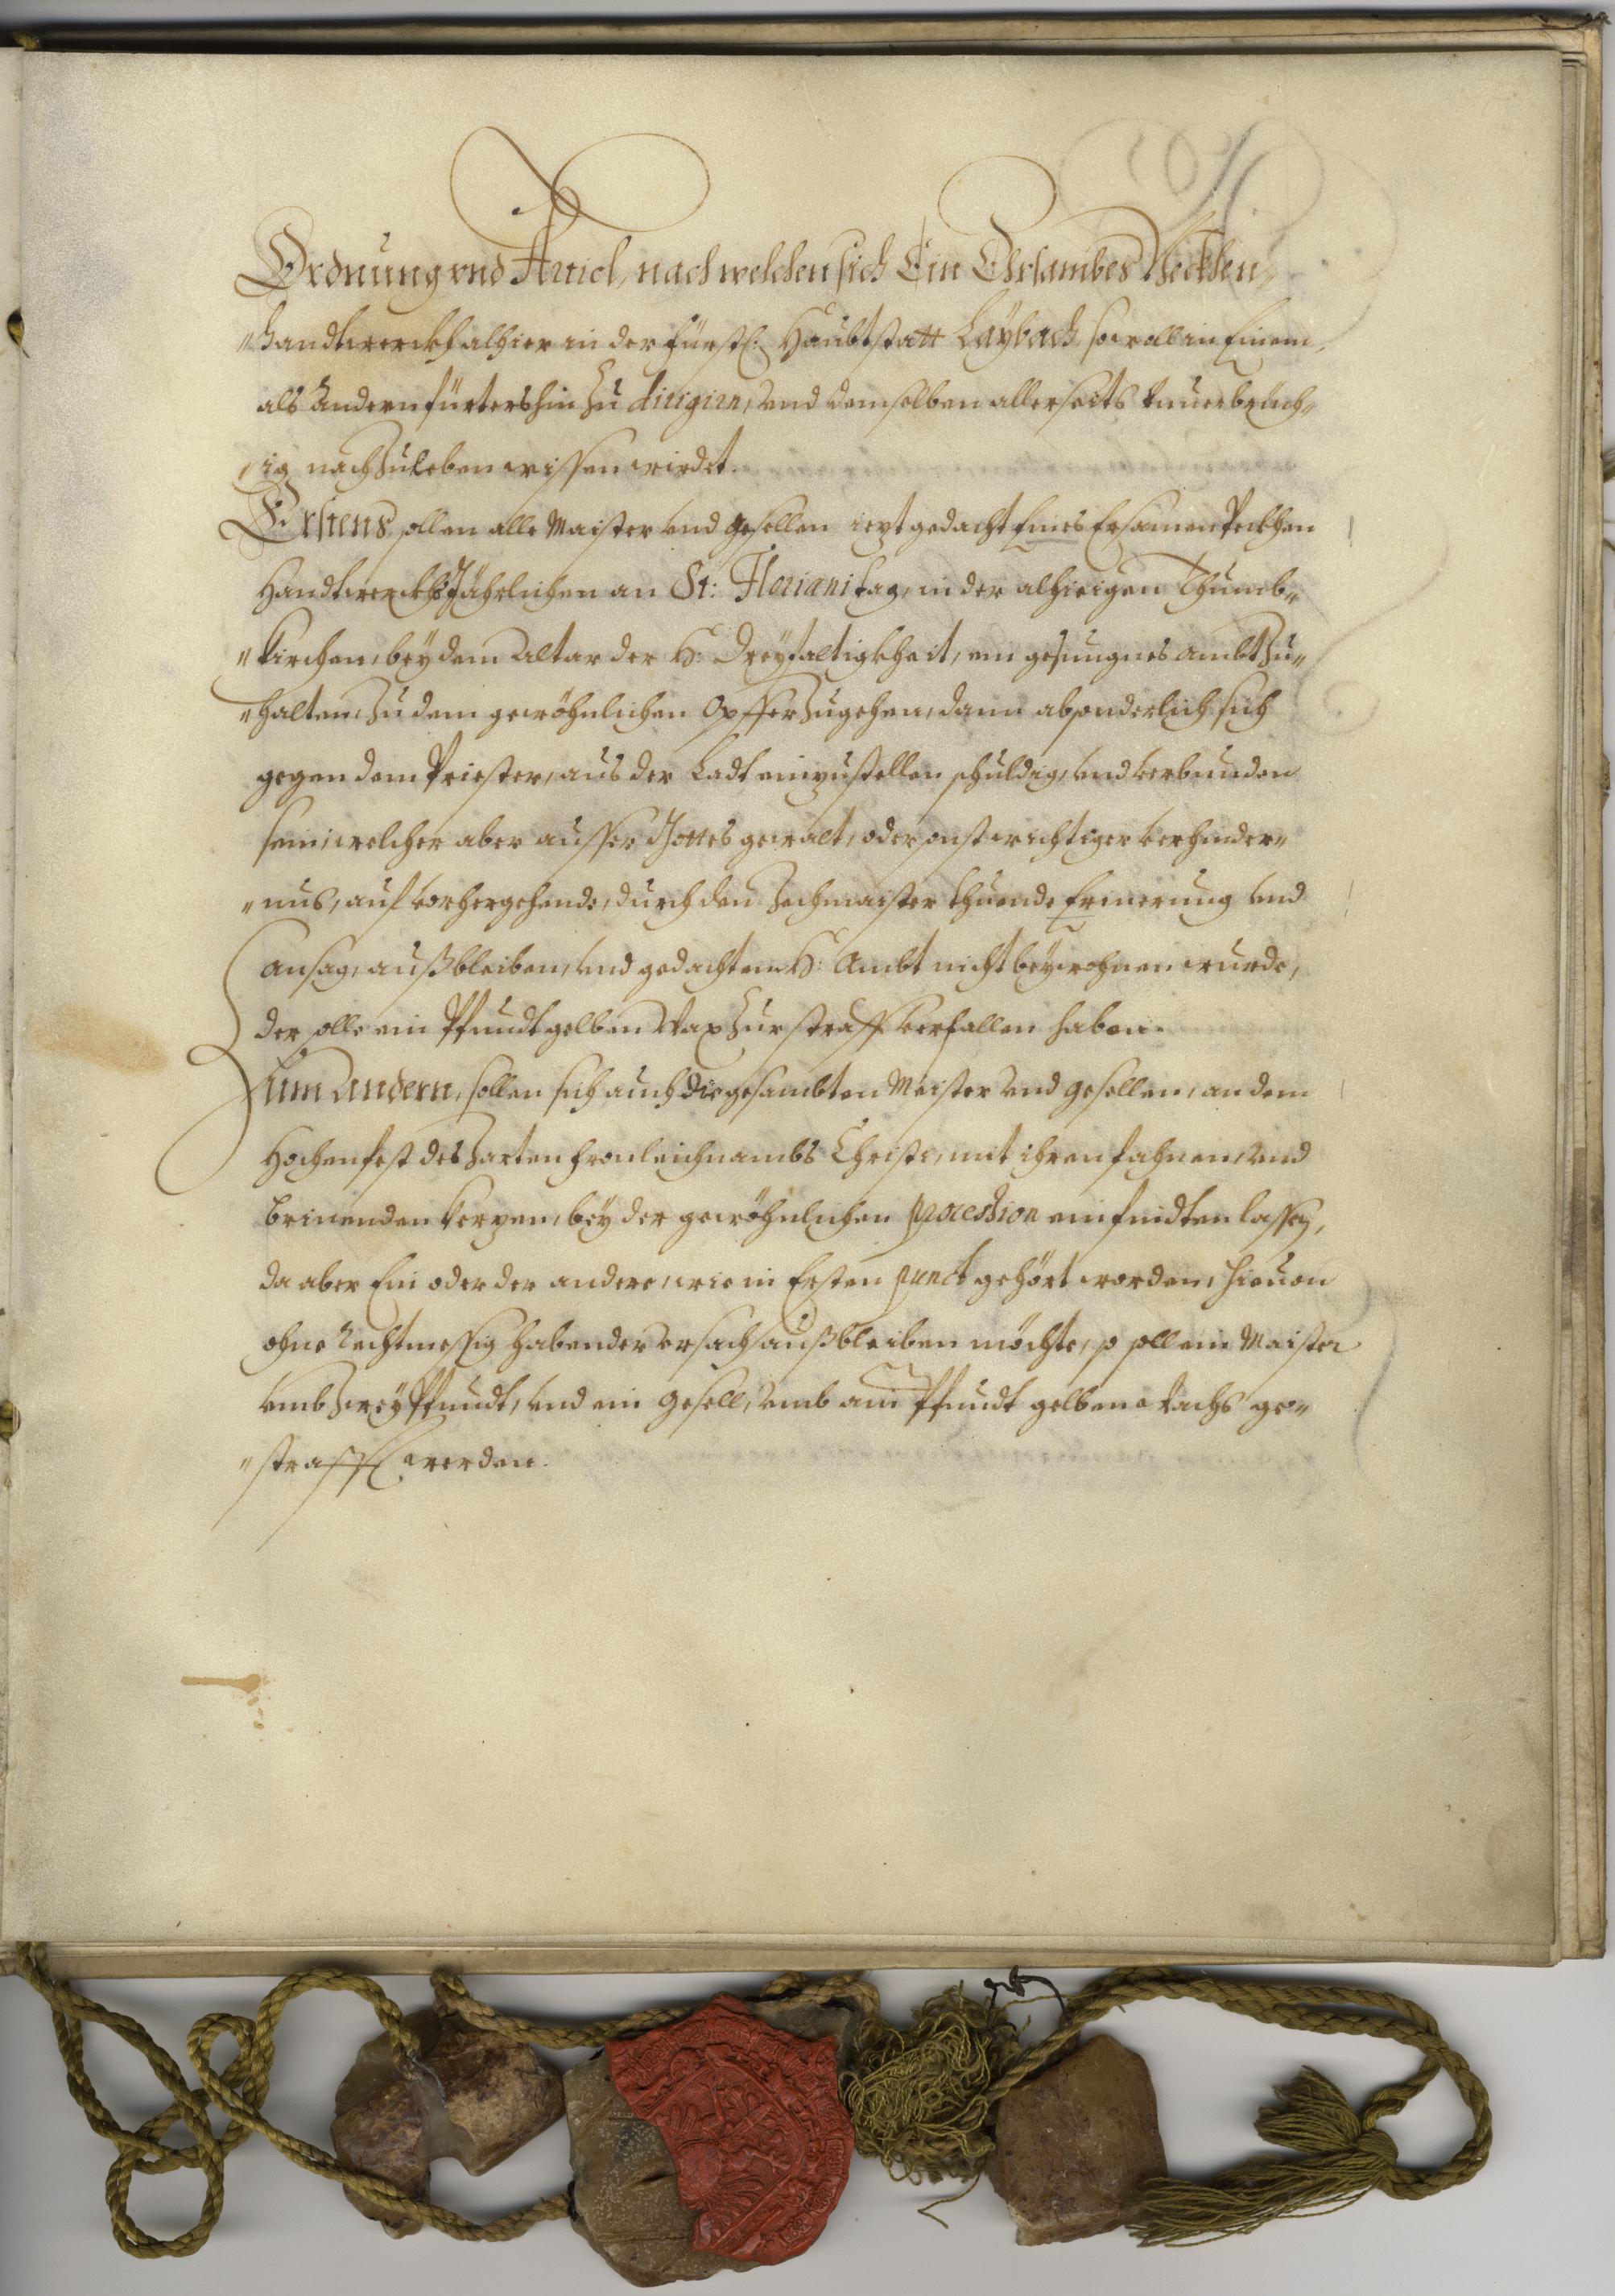 Ordnung vnd Articl, nach welchen sich Ein Ehrsambes Peckhen„
„handtwerckh alhier in der fürstl: Haubtstatt Laybach, sowall in Einem,
als Andern fürtershin zu dirigirn, vnd demselben allerseits vnuerbrüch„
„ig nachzuleben wissen wirdet.
Erstens, sollen alle Maister vnd gesellen iezt gedacht Eines Ersamen Peckhen
Handtwerckhs Jährlichen an St: Floriani tag, in der alhieigen Thumb„
„kirchen, bey dem Altar der H: Dreyfaltigkheit, ein gesungnes ambt zu„
„halten, zu dem gewöhnlichen Opffer zugehen, dann absonderlich sich
gegen dem Priester, aus der Ladt einzustellen schuldig, vnd verbunden
sein, welcher aber ausser Gottes gewalt, oder sonst wichtiger verhinder„
„nus, auf vorhergehende, durch den Zechmaister thuende Erinerung vnd
ansag, außbleiben, vnd gedachtem H: Ambt nicht beywohnen wurde,
der solle ein Pfundt gelben Wax zur straff verfallen haben.
Zum Andern, sollen sich auch die gesambten Maister vnd gesellen, an dem
Hochenfest des Zarten fronleichnambs Christi, mit ihren fahnen, vnd
brinenden kerzen, bey der gewöhnlichen procession einfindten lassen,
da aber Ein oder der andere, wie in Ersten punct gehört worden, hieuon
ohne Rechtmessig habender vrsach außbleiben möchte, so soll ein Maister
vmb zwey Pfundt, vnd ein gesell, vmb ain Pfundt gelben wachs ge„
„strafft werden.